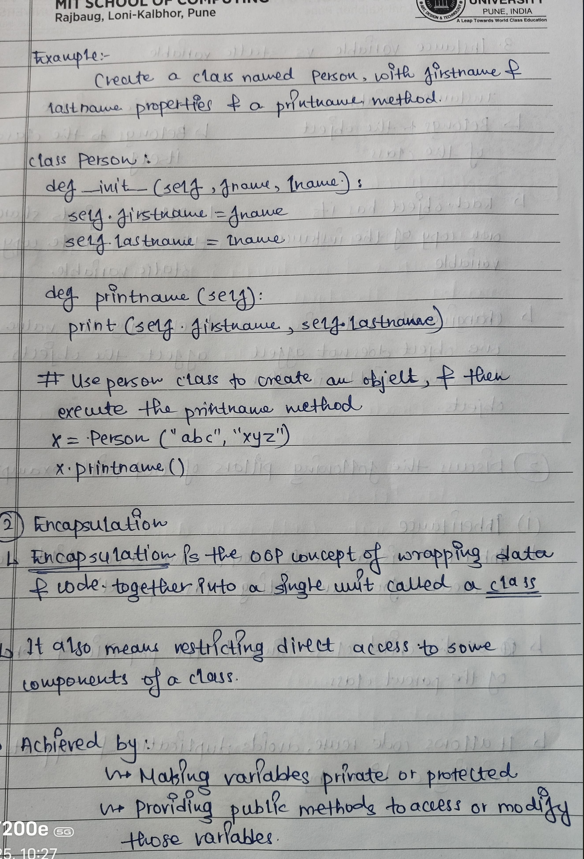 MIT SCHOOL OF COMPUTING
Rajbaug, Loni-Kalbhor, Pune
UNIVERSITY
PUNE, INDIA
A Leap Towards World Class Education
Example:-
Create a class named Person, with firstname &
lastname properties & a printname method.
class Person :
def _init_ (self, fname, lname) :
self. firstname = fname
self. lastname = lname
def printname (self):
print (self. firstname, self. lastname)
# Use person class to create an object, & then
execute the printname method
x = Person ("abc", "xyz")
x. printname ()
② Encapsulation
↳ Encapsulation is the OOP concept of wrapping data
& code together into a single unit called a class
↳ It also means restricting direct access to some
components of a class.
Achieved by:
↳ Making variables private or protected
↳ Providing public methods to access or modify
those variables.
200e 5G
5, 10:27